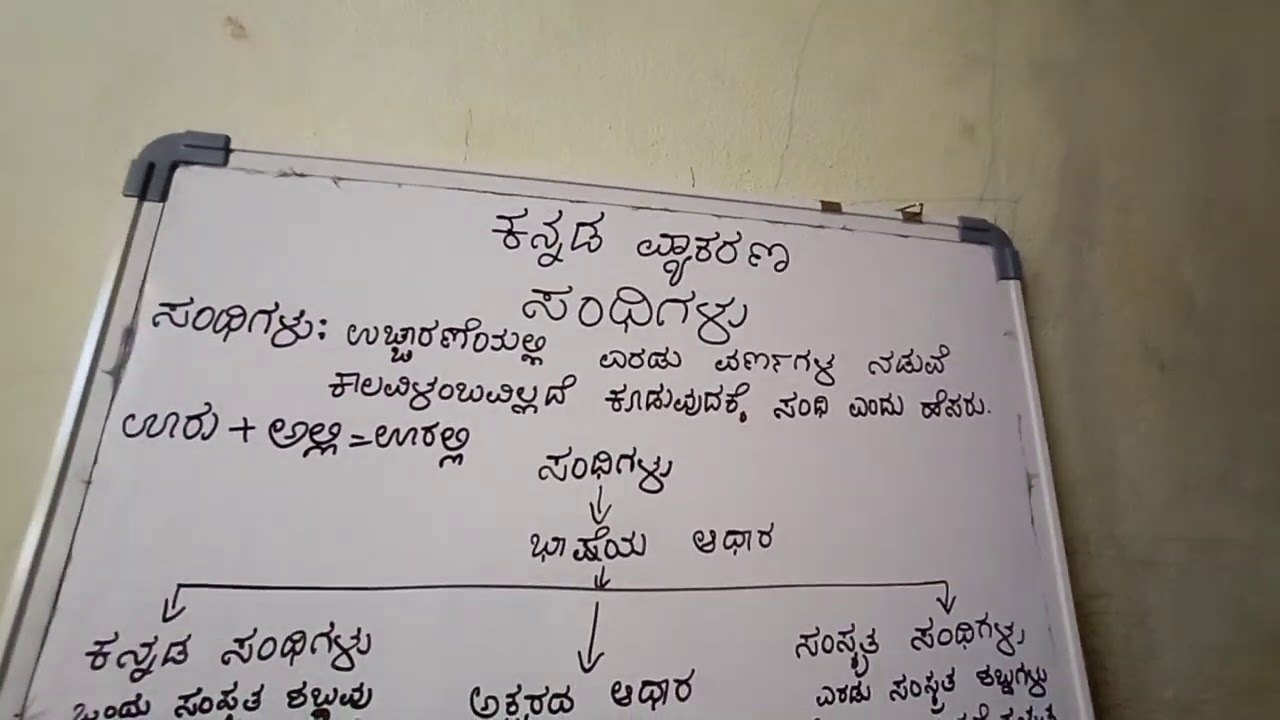 ಕನ್ನಡ ವ್ಯಾಕರಣ
ಸಂಧಿಗಳು
ಸಂಧಿಗಳು: ಉಚ್ಚಾರಣೆಯಲ್ಲಿ ಎರಡು ವರ್ಣಗಳ ನಡುವೆ
ಕಾಲವಿಳಂಬವಿಲ್ಲದೆ ಕೂಡುವುದಕ್ಕೆ ಸಂಧಿ ಎಂದು ಹೆಸರು.
ಊರು + ಅಲ್ಲಿ = ಊರಲ್ಲಿ
ಸಂಧಿಗಳು
ಭಾಷೆಯ ಆಧಾರ
ಕನ್ನಡ ಸಂಧಿಗಳು
ಸಂಸ್ಕೃತ ಸಂಧಿಗಳು
ಒಂದು ಸಂಸ್ಕೃತ ಶಬ್ದವು
ಅಕ್ಷರದ ಆಧಾರ
ಎರಡು ಸಂಸ್ಕೃತ ಶಬ್ದಗಳು